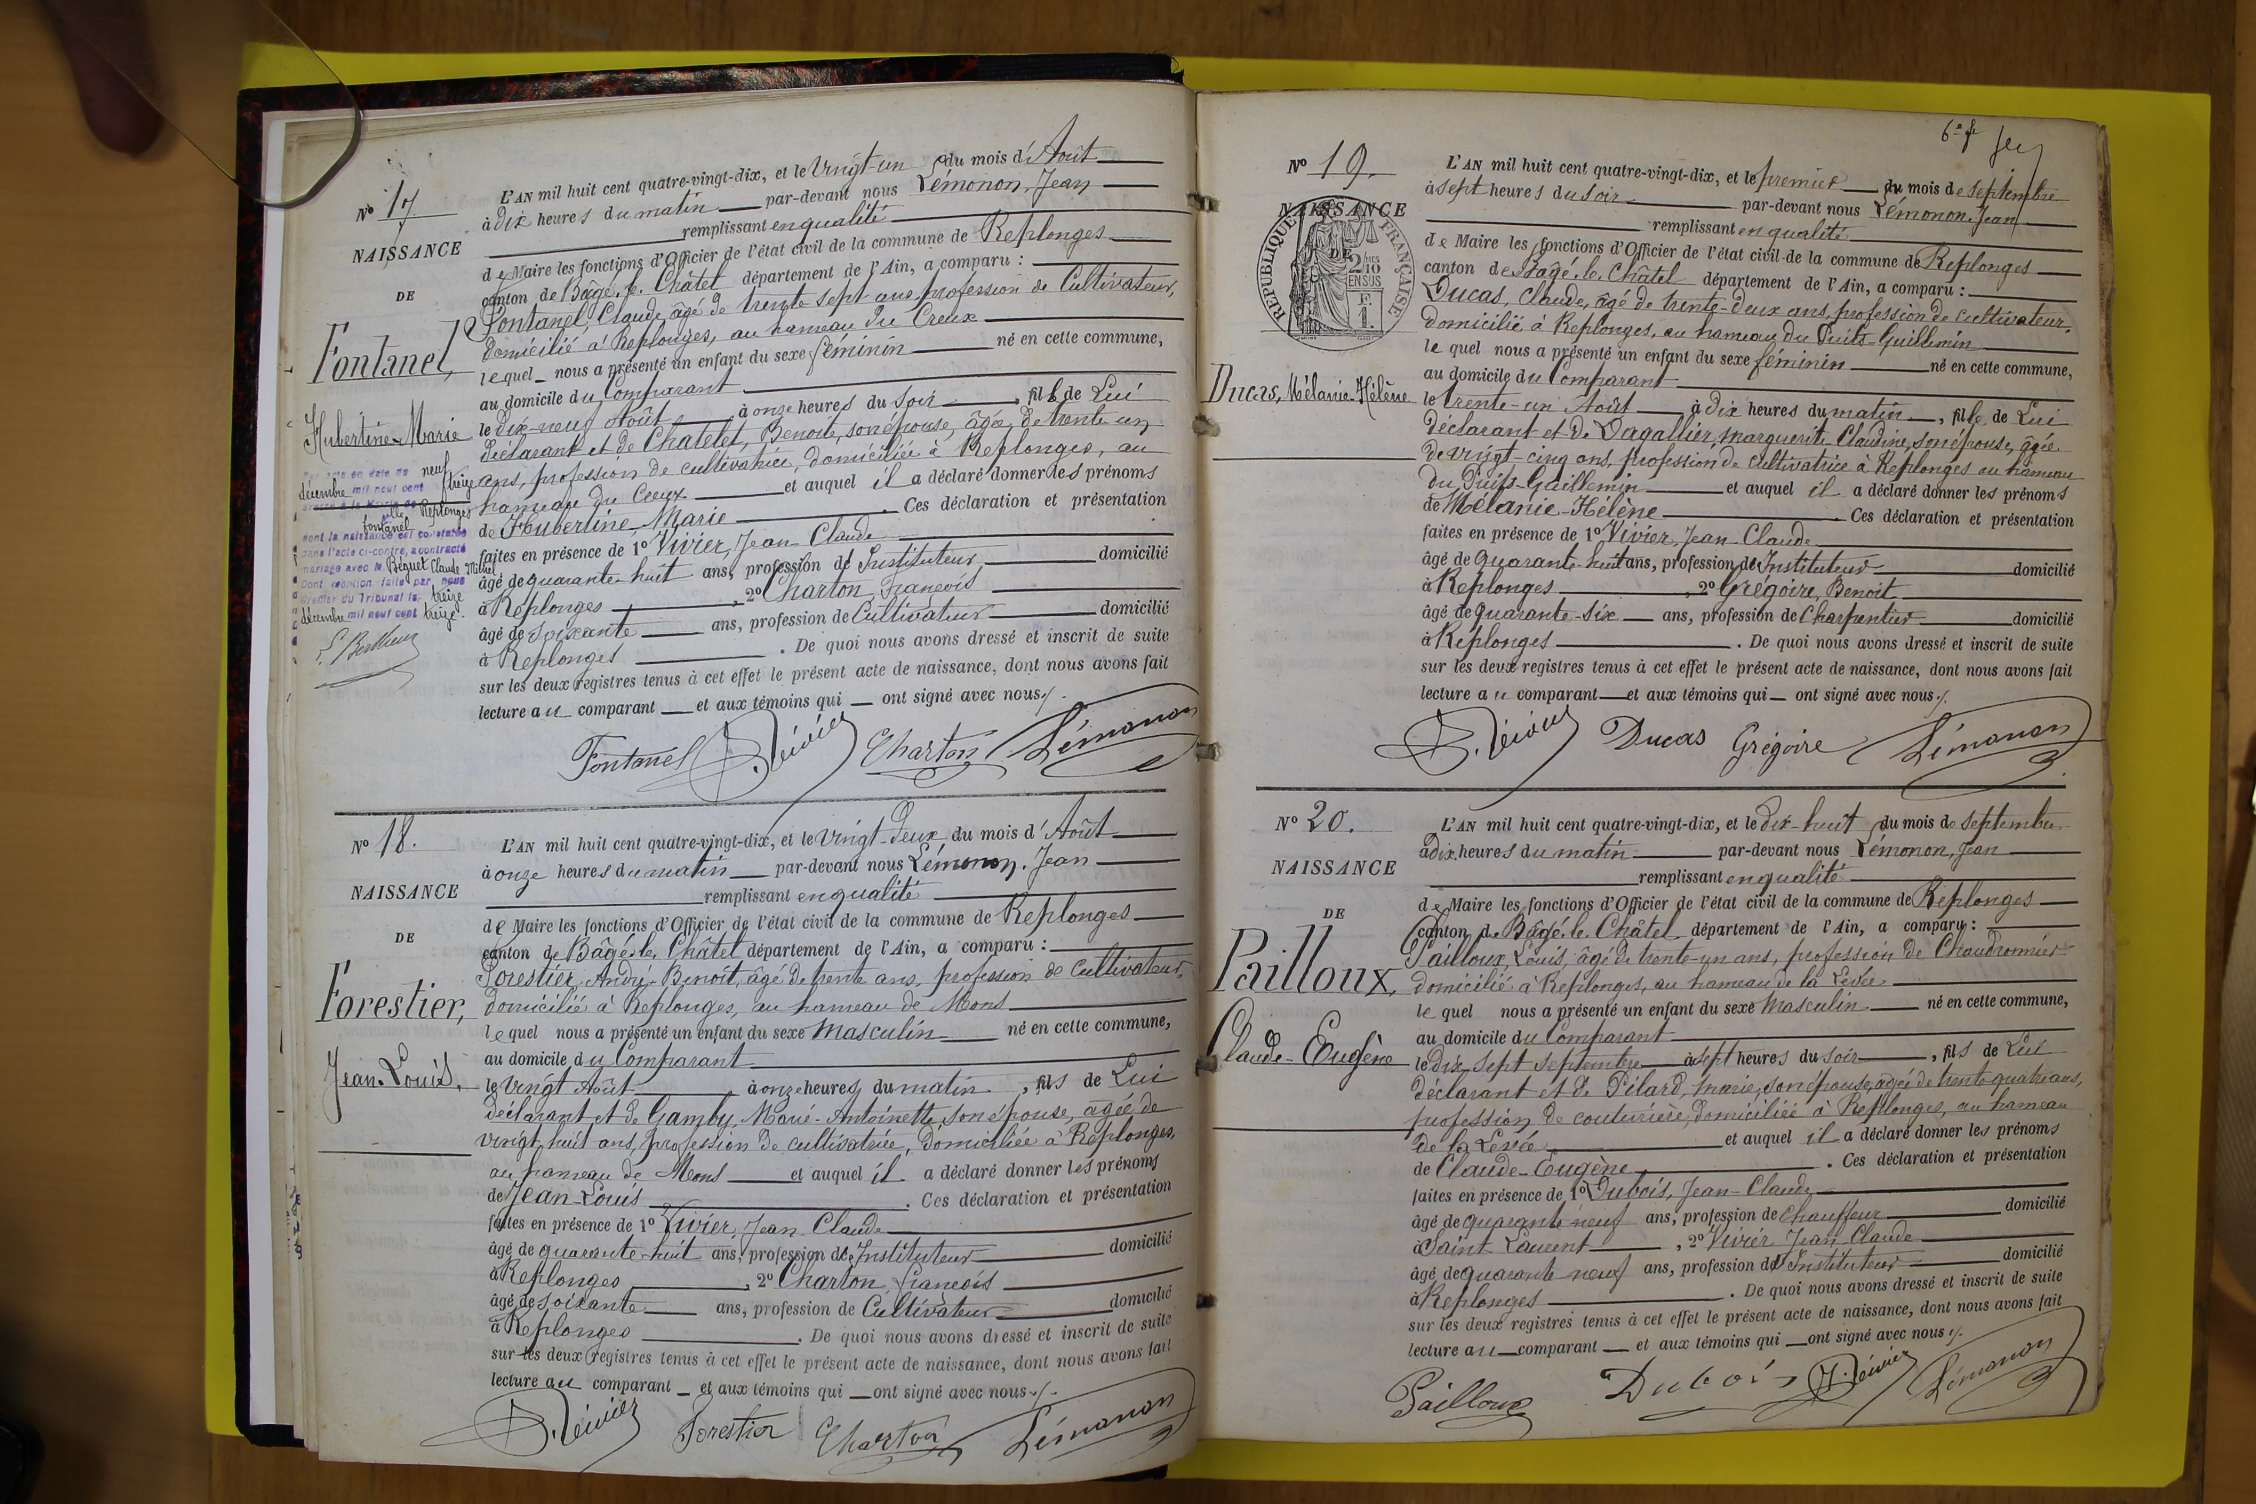 Nº 17
NAISSANCE
DE
Fontanel,
Hubertine-Marie
neuf
décembre mil neuf cent treize
Replonges
fontanel
dont la naissance est constatée
dans l'acte ci-contre, a contracté
mariage avec le Béguet Claude Michel
Dont mention faite par nous
Greffier du Tribunal le treize
décembre mil neuf cent treize.
L'AN mil huit cent quatre-vingt-dix, et le vingt-un du mois d'Août
à dix heures du matin par-devant nous Lémonon, Jean
remplissant en qualité
de Maire les fonctions d'Officier de l'état civil de la commune de Replonges
canton de Bâgé-le-Châtel département de l'Ain, a comparu :
Fontanel, Claude, âgé de trente sept ans, profession de Cultivateur,
domicilié à Replonges, au hameau du Creux
lequel nous a présenté un enfant du sexe féminin né en cette commune,
au domicile du Comparant
le dix-neuf Août à onze heures du soir, fille de Lui
déclarant et de Chatelet, Benoite, son épouse, âgée de trente un
ans, profession de cultivatrice, domiciliée à Replonges, au
hameau du Creux et auquel il a déclaré donner les prénoms
de Hubertine-Marie. Ces déclaration et présentation
faites en présence de 1º Vivier, Jean-Claude
âgé de quarante-huit ans, profession de Instituteur domicilié
à Replonges, 2º Charton, François
âgé de soixante ans, profession de Cultivateur domicilié
à Replonges. De quoi nous avons dressé et inscrit de suite
sur les deux registres tenus à cet effet le présent acte de naissance, dont nous avons fait
lecture au comparant et aux témoins qui ont signé avec nous.
Fontanel J. Vivier Charton Lémonon
Nº 18.
NAISSANCE
DE
Forestier,
Jean-Louis.
L'AN mil huit cent quatre-vingt-dix, et le vingt-deux du mois d'Août
à onze heures du matin par-devant nous Lémonon, Jean
remplissant en qualité
de Maire les fonctions d'Officier de l'état civil de la commune de Replonges
canton de Bâgé-le-Châtel département de l'Ain, a comparu :
Forestier, André-Benoît, âgé de trente ans, profession de cultivateur,
domicilié à Replonges, au hameau de Mons
lequel nous a présenté un enfant du sexe masculin né en cette commune,
au domicile du Comparant
le vingt Août à onze heures du matin, fils de Lui
déclarant et de Gamby, Marie-Antoinette, son épouse, âgée de
vingt-huit ans, profession de cultivatrice, domiciliée à Replonges,
au hameau de Mons et auquel il a déclaré donner les prénoms
de Jean-Louis. Ces déclaration et présentation
faites en présence de 1º Vivier, Jean-Claude
âgé de quarante-huit ans, profession de Instituteur domicilié
à Replonges, 2º Charton, François
âgé de soixante ans, profession de Cultivateur domicilié
à Replonges. De quoi nous avons dressé et inscrit de suite
sur les deux registres tenus à cet effet le présent acte de naissance, dont nous avons fait
lecture au comparant et aux témoins qui ont signé avec nous.
J. Vivier Forestier Charton Lémonon
Nº 19.
NAISSANCE
DE
RÉPUBLIQUE FRANÇAISE
2/10 EN SUS
Ducas, Mélanie-Hélène
L'AN mil huit cent quatre-vingt-dix, et le premier du mois de septembre
à sept heures du soir par-devant nous Lémonon, Jean
remplissant en qualité
de Maire les fonctions d'Officier de l'état civil de la commune de Replonges
canton de Bâgé-le-Châtel département de l'Ain, a comparu :
Ducas, Claude, âgé de trente-deux ans, profession de cultivateur,
domicilié à Replonges, au hameau du Puits-Guillemin
lequel nous a présenté un enfant du sexe féminin né en cette commune,
au domicile du Comparant
le trente-un Août à dix heures du matin, fille de Lui
déclarant et de Dagallier, Marguerite Claudine, son épouse, âgée
de vingt-cinq ans, profession de cultivatrice à Replonges au hameau
du Puits-Guillemin et auquel il a déclaré donner les prénoms
de Mélanie-Hélène. Ces déclaration et présentation
faites en présence de 1º Vivier, Jean-Claude
âgé de quarante-huit ans, profession de Instituteur domicilié
à Replonges, 2º Grégoire, Benoit
âgé de quarante-six ans, profession de Charpentier domicilié
à Replonges. De quoi nous avons dressé et inscrit de suite
sur les deux registres tenus à cet effet le présent acte de naissance, dont nous avons fait
lecture au comparant et aux témoins qui ont signé avec nous.
J. Vivier Ducas Grégoire Lémonon
Nº 20.
NAISSANCE
DE
Pailloux,
Claude-Eugène
L'AN mil huit cent quatre-vingt-dix, et le dix-huit du mois de septembre
à dix heures du matin par-devant nous Lémonon, Jean
remplissant en qualité
de Maire les fonctions d'Officier de l'état civil de la commune de Replonges
canton de Bâgé-le-Châtel département de l'Ain, a comparu :
Pailloux, Louis, âgé de trente-un ans, profession de Chaudronnier
domicilié à Replonges, au hameau de la Levée
lequel nous a présenté un enfant du sexe masculin né en cette commune,
au domicile du Comparant
le dix-sept septembre à sept heures du soir, fils de Lui
déclarant et de Pélard, Marie, son épouse, âgée de trente-quatre ans,
profession de couturière, domiciliée à Replonges, au hameau
de la Levée et auquel il a déclaré donner les prénoms
de Claude-Eugène. Ces déclaration et présentation
faites en présence de 1º Dubois, Jean-Claude
âgé de quarante neuf ans, profession de chauffeur domicilié
à Saint-Laurent, 2º Vivier Jean-Claude
âgé de quarante neuf ans, profession d'Instituteur domicilié
à Replonges. De quoi nous avons dressé et inscrit de suite
sur les deux registres tenus à cet effet le présent acte de naissance, dont nous avons fait
lecture au comparant et aux témoins qui ont signé avec nous.
Pailloux Dubois J. Vivier Lémonon